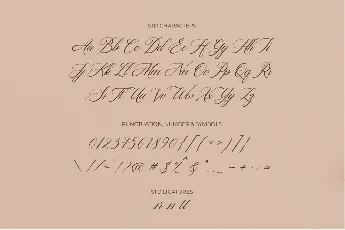 STD CHARACTERS
Aa Bb Cc Dd Ee Ff Gg Hh Ii
Jj Kk Ll Mm Nn Oo Pp Qq Rr
Ss Tt Uu Vv Ww Xx Yy Zz
PUNCTUATION, NUMBER & SYMBOLS
01234567890
STD LIGATURES